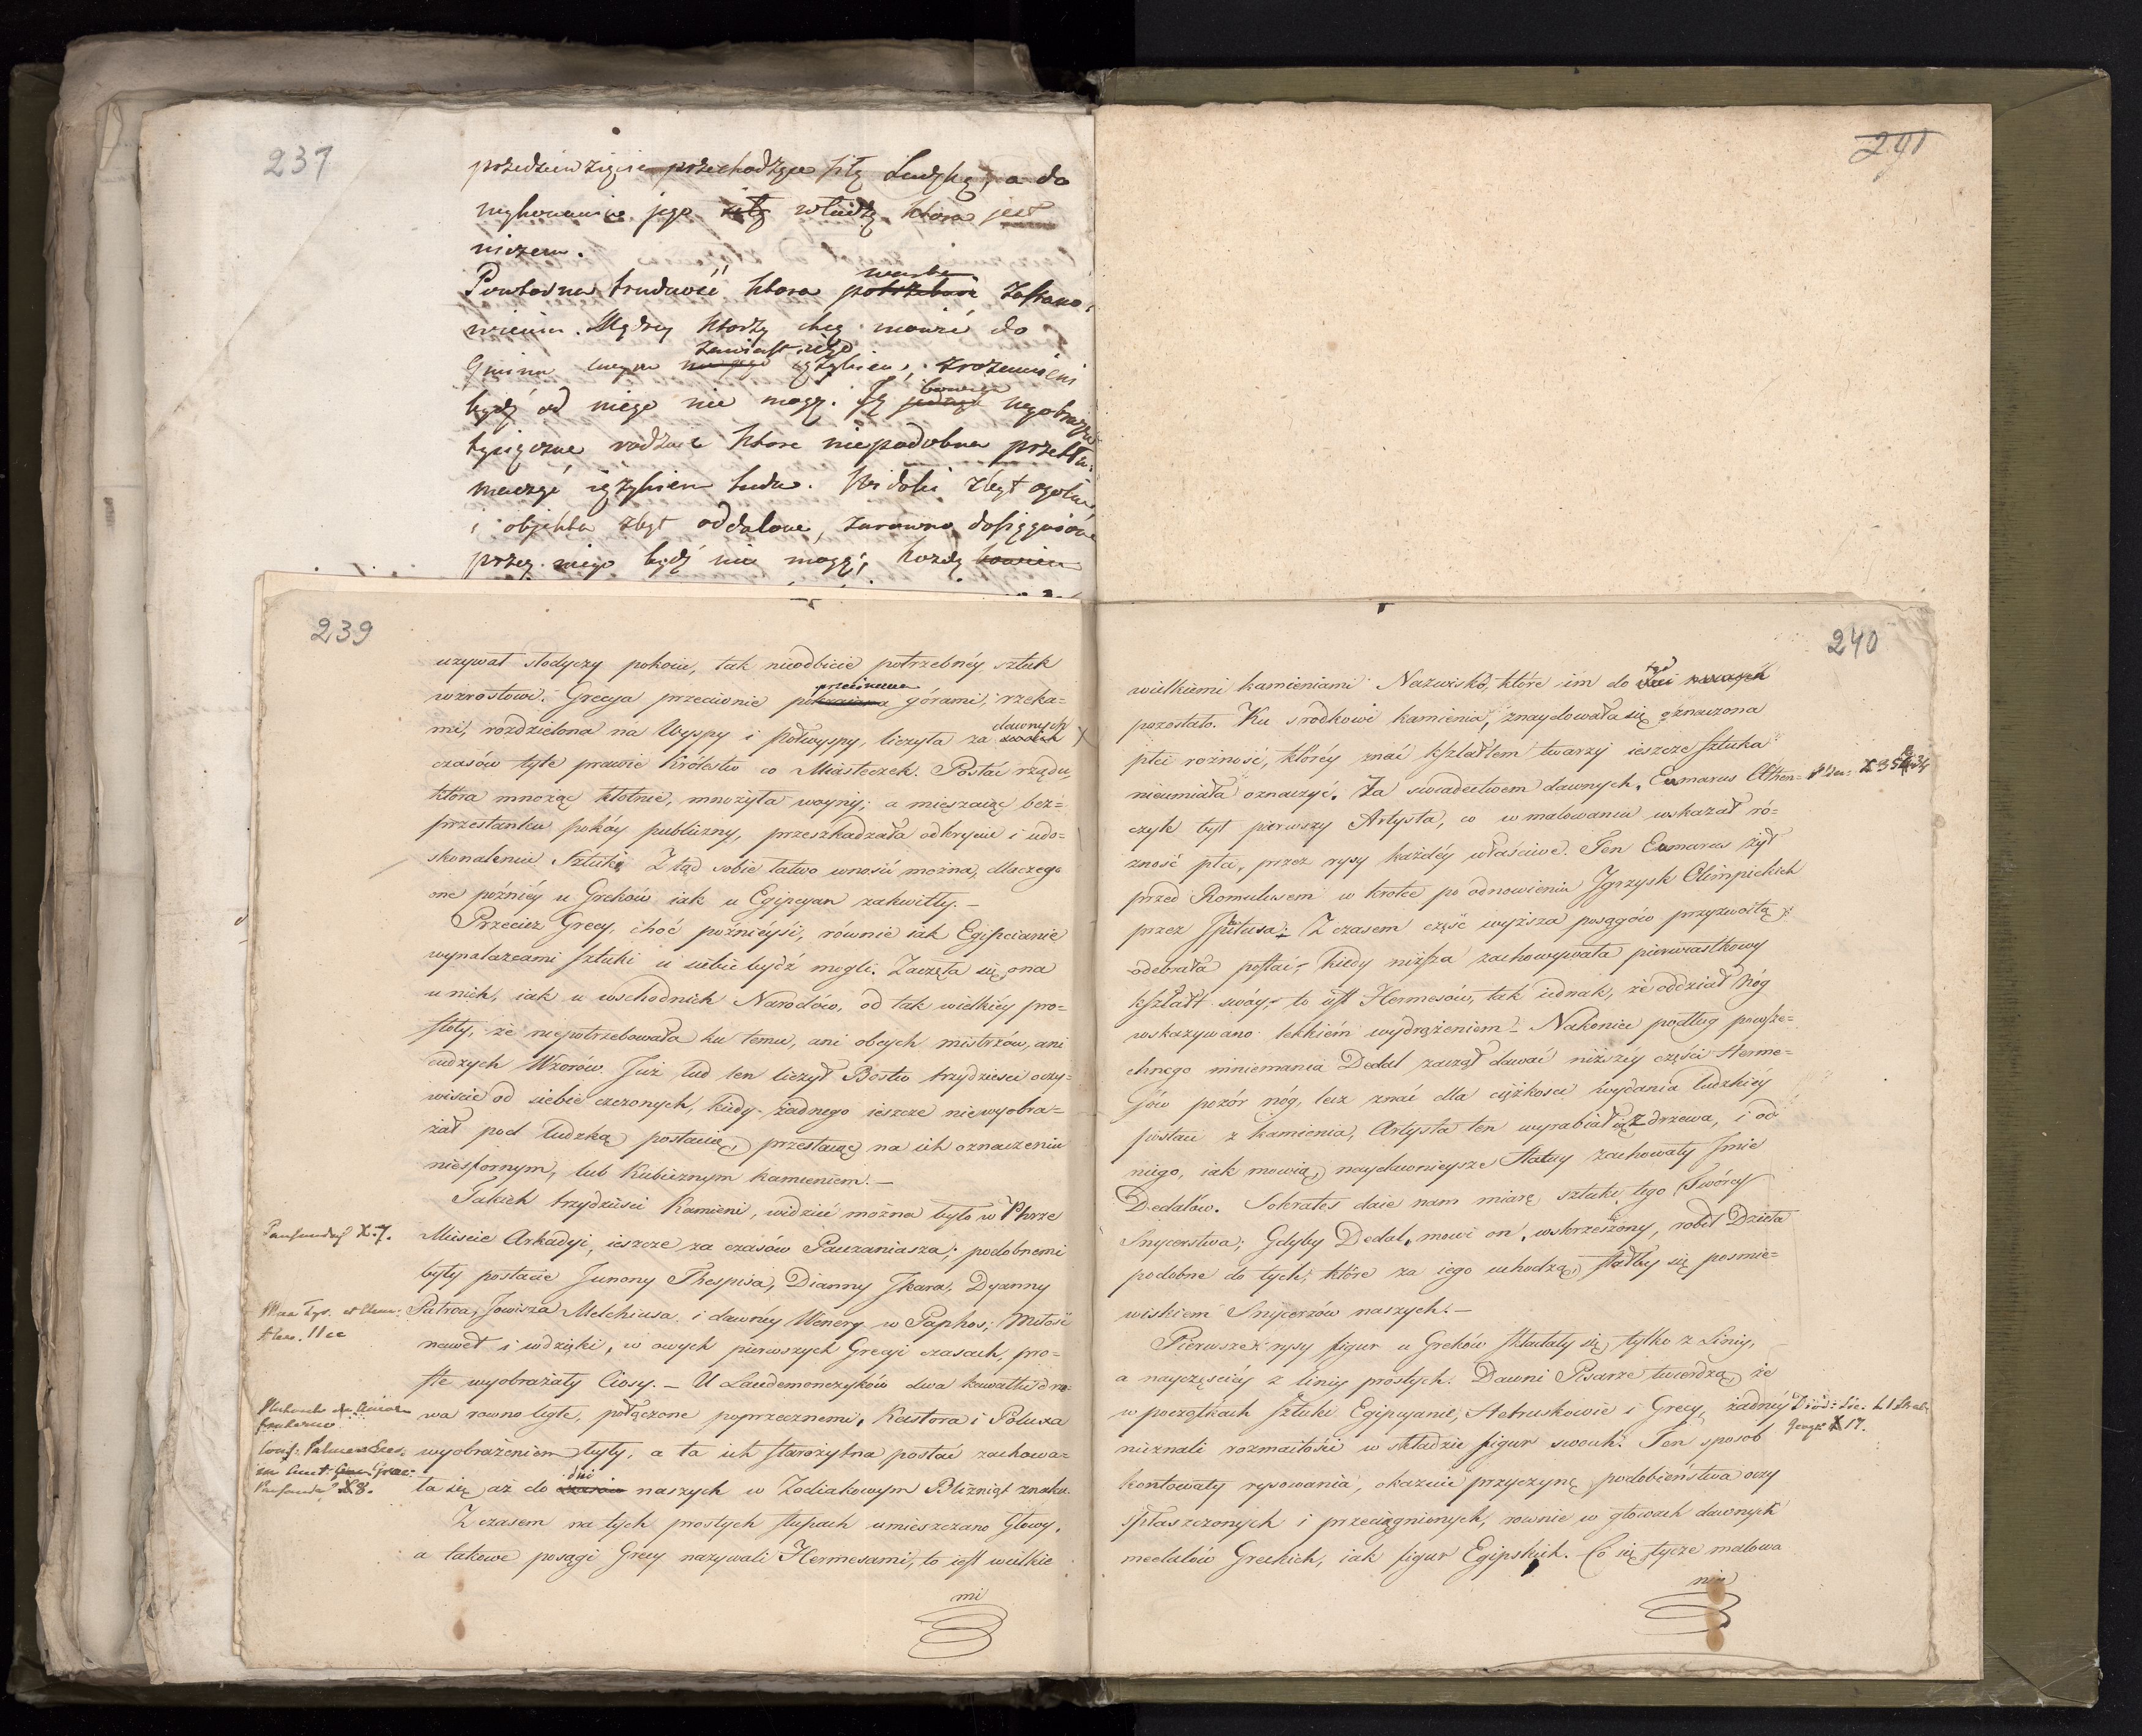 237
przedziewzięcie przechodzące siłę Ludzką, a do
wykonania jego siłę władzę która jest
niczem.
Powtórna trudność która potrzebuie warta zastano-
wienia. Mędrcy którzy chcą mówić do
Gminu swym zamiast iego ięzykiem, zrozumieni
bydź od niego nie mogą. Są bowiem wyobrażeń
tysiączne rodzaie które niepodobna przetłu-
maczyć ięzykiem ludu. Widoki zbyt ogólne
i objekta zbyt oddalone, zarówno dosięgnione
przez niego bydź nie mogą; każdy bowiem
239
używał słodyczy pokoiu, tak nieodbicie potrzebnéy sztuk
wzrostowi. Grecya przeciwnie przecinana górami, rzeka=
mi, rozdzielona na Wyspy i półwyspy, liczyła za dawnych
czasów tyle prawie Królestw co Miasteczek. Postać rządu,
która mnożąc kłótnie, mnożyła woyny; a mięszaiąc bez=
przestanku pokóy publiczny, przeszkadzała odkryciu i udo=
skonaleniu Sztuki. Ztąd sobie łatwo wnosić można, dlaczego
one poźniéy u Greków iak u Egipcyan zakwitły.—
Przecież Grecy, choć poźnieysi, równie iak Egipcianie
wynalazcami sztuki u siebie bydź mogli. Zaczęła się ona
u nich, iak u wschodnich Narodów, od tak wielkiéy pro=
stoty, że niepotrzebowała ku temu, ani obcych mistrzów, ani
cudzych Wzorów. Już lud ten liczył Bóstw trzydzieści oczy=
wiście od siebie czczonych, kiedy żadnego ieszcze niewyobra=
żał pod ludzką postacią, przestaiąc na ich oznaczeniu
niesfornym, lub Kubicznym kamieniem.—
Takich trzydzieści Kamieni, widzieć można było w Pharze
X. 7. Mieście Arkadyi, ieszcze za czasów Pauzaniasza; podobnemi
były postacie Junony Thespisa, Dianny Ikara, Dyanny
Patroa, Jowisza Melchiusa i dawnéy Wenery w Paphos; Miłość
nawet i wdzięki, w owych pierwszych Grecyi czasach, pro=
ste wyobrażały Ciosy.— U Lacedemonczyków dwa kawałki drze=
wa równoległe, połączone poprzecznemi, Kastora i Poluxa
wyobrażeniem były, a ta ich starożytna postać zachowa=
X8. ła się aż do dni naszych w Zodiakowym Bliźniąt znaku.
Z czasem na tych prostych słupach umieszczano Głowy,
a takowe posągi Grecy nazywali Hermesami, to iest wielkie
mi
291
240
wielkiemi kamieniami Nazwisko, które im do tąd
pozostało. Ku środkowi kamienia, znaydowała się oznaczona
płci rożność, któréy znać kształtem twarzy ieszcze Sztuka
nieumiała oznaczyć. Za swiadectwem dawnych, Eumarus Athen=
czyk był pierwszy Artysta, co w malowaniu wskazał ró=
żność płci, przez rysy każdéy właściwe. Ten Eumarus żył
przed Romulusem w krotce po odnowieniu Jgrzysk Olimpickich
przez Jfitusa. Z czasem część wyższa posągów przyzwoitą
odebrała postać, kiedy niższa zachowywała pierwiastkowy
kształt swóy, to iest Hermesów, tak iednak, że oddział Nóg
wskazywano lekkiém wydrążeniem. Nakoniec podług powsze=
chnego mniemania Dedal zaczął dawać niższéy części Herme=
sów pozór nóg, lecz znać dla ciężkosci wydania ludzkiéy
postaci z kamienia, Artysta ten wyrabiał ią z drzewa, i od
niego, iak mowią, naydawnieysze Statuy zachowały Jmie
Dedalów. Sokrates daie nam miarę sztuki tego Twórcy
Snycerstwa; Gdyby Dedal, mowi on, wskrzeszony, robił Dzieła
podobne do tych, które za iego uchodzą, stałby się posmie=
wiskiem Snycerzów naszych.—
Pierwsze rysy figur u Greków składały się tylko z Linii,
a nayczęściéy z linij prostych. Dawni Pisarze twierdzą, że
w początkach sztuki Egipcyanie, Hetruskowie i Grecy, żadnéy
nieznali rozmaitości w składzie figur swoich. Ten sposob
kontowaty rysowania, okazuie przyczynę podobieństwa oczy
spłaszczonych i przeciągnionych, rownie w głowach dawnych
medalów Greckich, iak figur Egipskich. Co się tycze malowa
nia